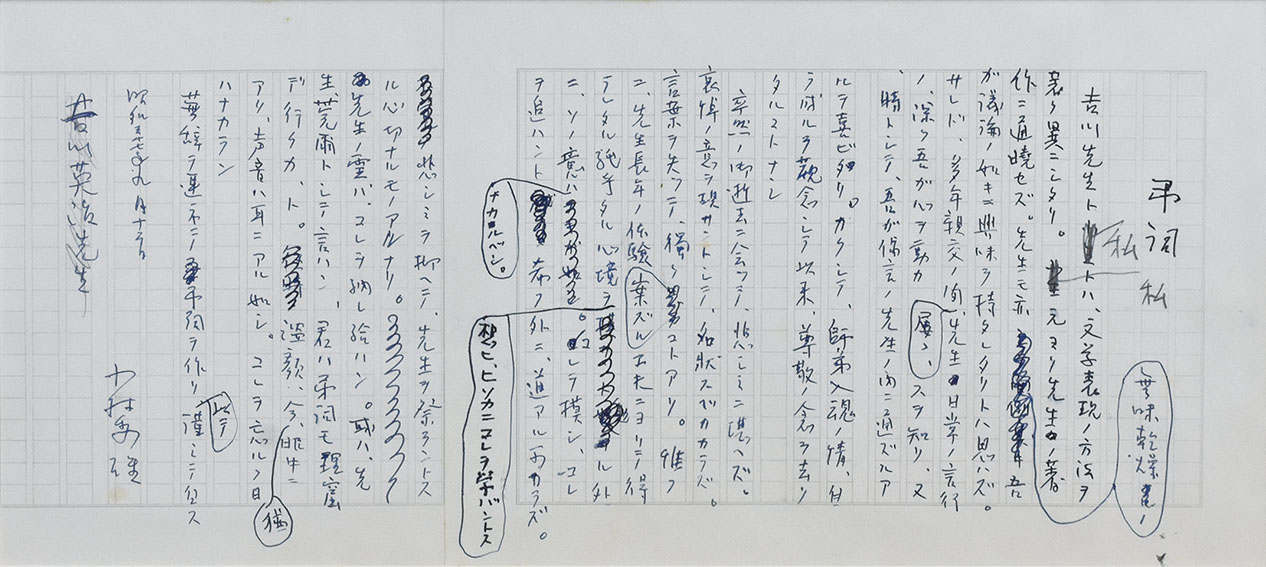 弔詞
私
私
無味乾燥ノ
吉川先生ト ハ、文学表現ノ方法ヲ
異ニシタリ。元ヨリ先生ノ著
作ニ通暁セズ。先生モ亦 吾
ガ議論ノ如キニ興味ヲ持タレタリトハ思ハズ。
サレド、多年親交ノ間、先生日常ノ言行
ノ、深ク吾ガ心ヲ動カ スヲ知リ、又
屡々、
時トシテ、吾ガ言ノ先生ノ内ニ通ズルア
ルヲ喜ビタリ。カクシテ、師弟入魂ノ情、自
ラ成ルヲ観念シテ以来、尊敬ノ念ヲ去リ
タルコトナシ
卒然ノ御逝去ニ会フテ、悲シミニ堪ヘズ。
哀悼ノ意ヲ現サントシテ、名状スベカカラズ。
言葉ヲ失フテ、独リ コトアリ。惟フ
ニ、先生長年ノ体験 ニヨリテ得
案ズル
ラレタル 心境ヲ ル外
想ヒ、ヒソカニコレヲ学バントス
ニ、ソノ意ハ 。コレヲ模シ、コレ
ナカルベシ。
ヲ追ハント 希フ外ニ、道アルベカラズ。
悲シミヲ抑ヘテ、先生ヲ祭ラントス
ル心切ナルモノアルナリ。
先生ノ霊ハ、コレヲ納レ給ハン。或ハ、先
生、莞爾トシテ言ハン、君ハ弔詞モ理窟
デ行クカ、ト。 温顔、今、
猶
アリ、声音ハ耳ニアル如シ。コレヲ忘ルヽ日
ハナカラン
蕪辞ヲ連ネテ 弔詞ヲ作リ、謹ミテ
此テ
昭和 年九月十 日
吉川英治先生